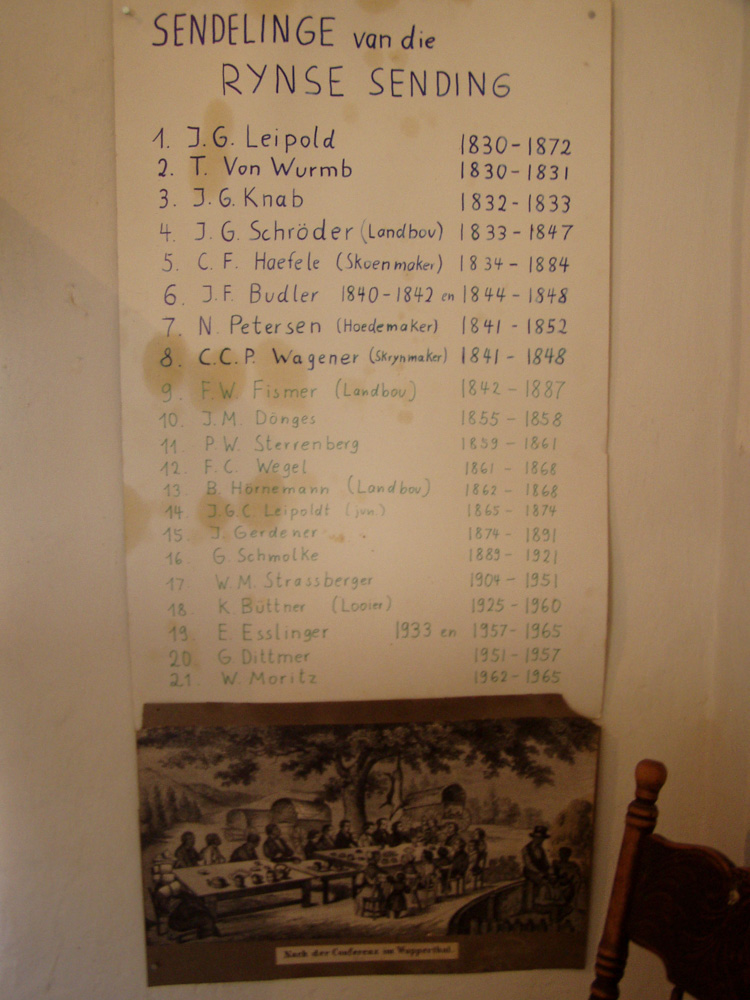 SENDELINGE van die
RYNSE SENDING
1. J.G. Leipold 1830-1872
2. T. Von Wurmb 1830-1831
3. J.G. Knab 1832-1833
4. J.G. Schröder (Landbou) 1833-1847
5. C.F. Haefele (Skoenmaker) 1834-1884
6. J.F. Budler 1840-1842 en 1844-1848
7. N. Petersen (Hoedemaker) 1841-1852
8. C.C.P. Wagener (Skrynmaker) 1841-1848
9. F.W. Fismer (Landbou) 1842-1887
10. J.M. Dönges 1855-1858
11. P.W. Sterrenberg 1859-1861
12. F.C. Wegel 1861-1868
13. B. Hörnemann (Landbou) 1862-1868
14. J.G.C. Leipoldt (jun.) 1865-1874
15. J. Gerdener 1874-1891
16. G. Schmolke 1889-1921
17. W.M. Strassberger 1904-1951
18. K. Büttner (Looier) 1925-1960
19. E. Esslinger 1933 en 1957-1965
20. G. Dittmer 1951-1957
21. W. Moritz 1962-1965
Nach der Conferenz im Wupperthal.